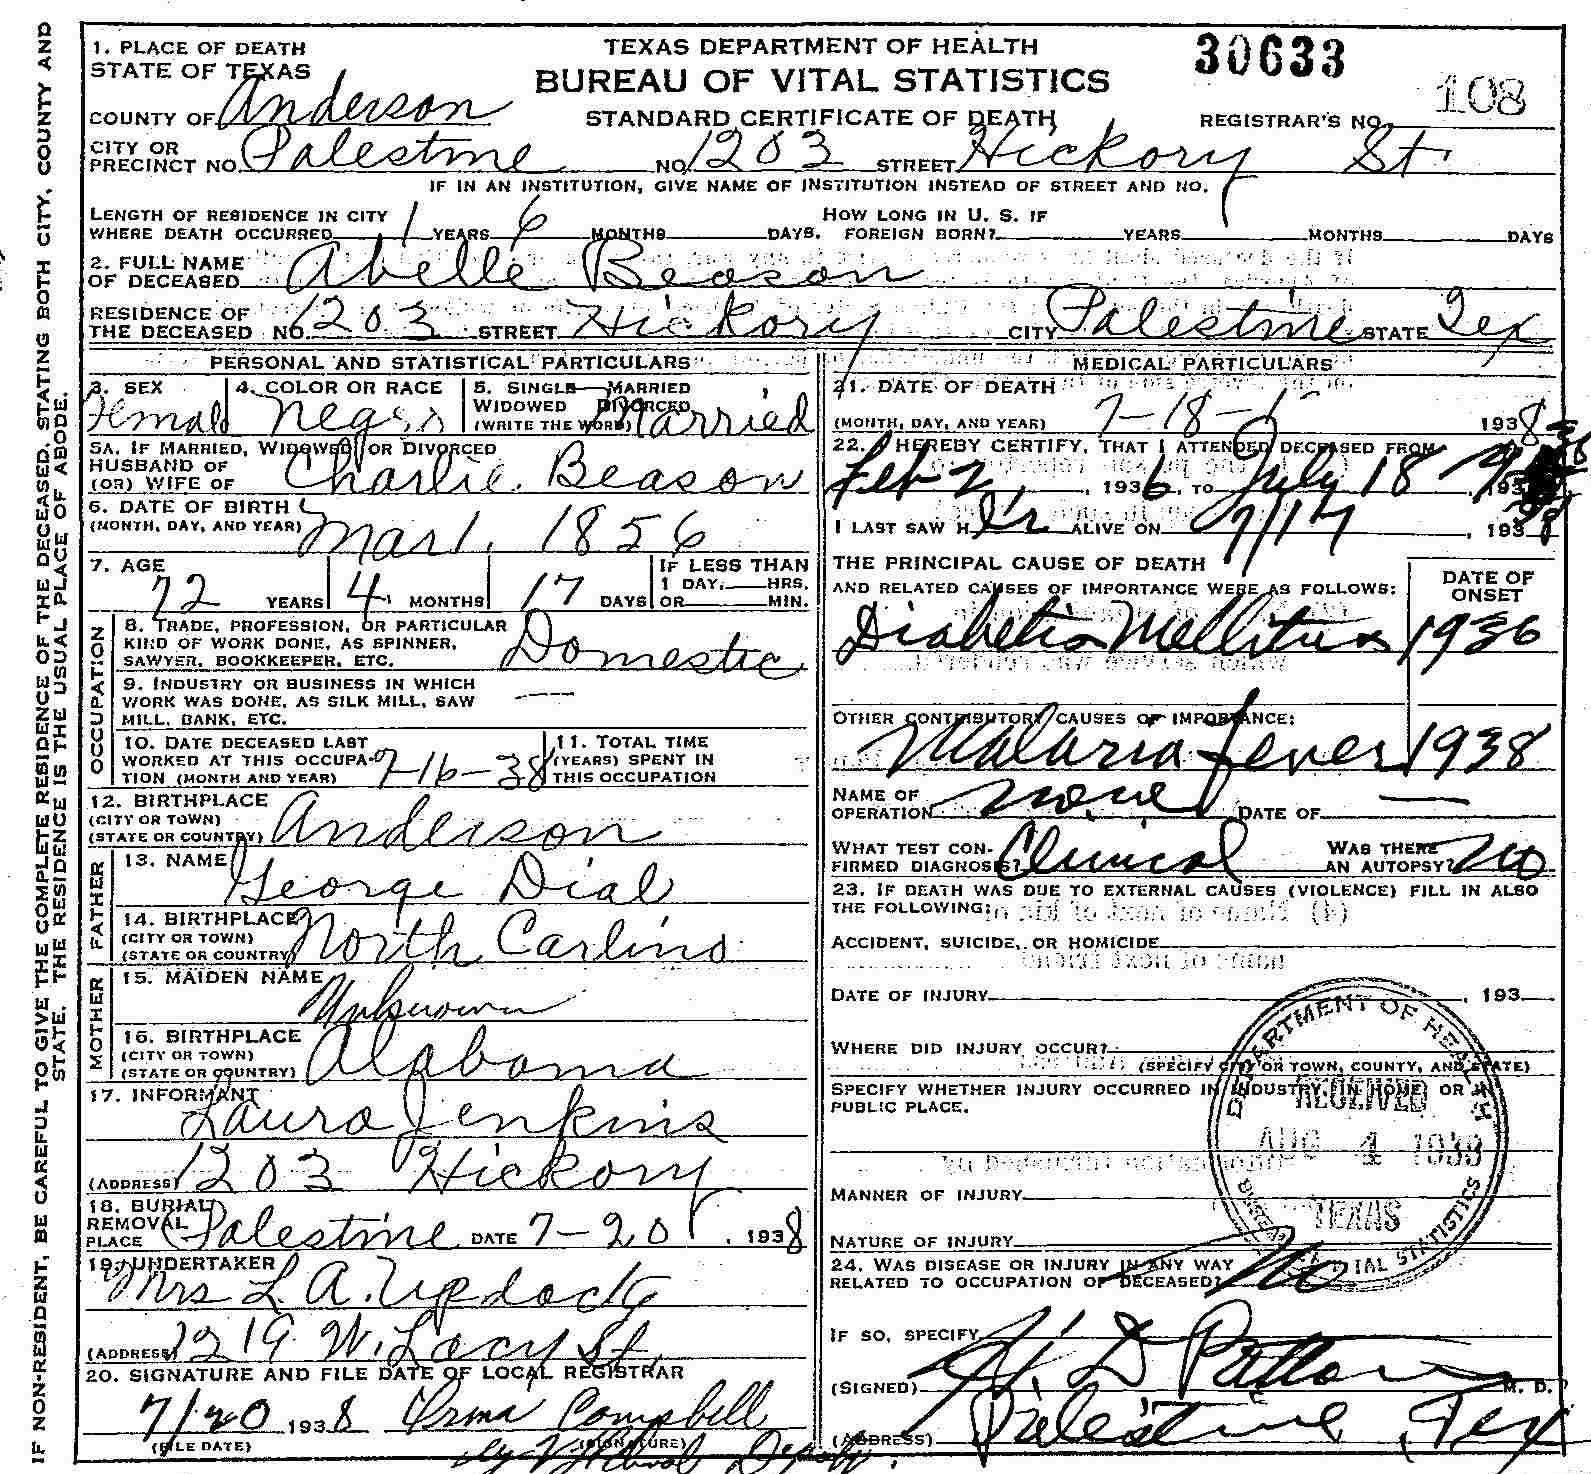 IF NON-RESIDENT, BE CAREFUL TO GIVE THE COMPLETE RESIDENCE OF THE DECEASED, STATING BOTH CITY, COUNTY AND
STATE. THE RESIDENCE IS THE USUAL PLACE OF ABODE.
TEXAS DEPARTMENT OF HEALTH
BUREAU OF VITAL STATISTICS
STANDARD CERTIFICATE OF DEATH
30633
REGISTRAR'S NO. 108
1. PLACE OF DEATH
STATE OF TEXAS
COUNTY OF Anderson
CITY OR
PRECINCT NO. Palestine NO. 1203 STREET Hickory St.
IF IN AN INSTITUTION, GIVE NAME OF INSTITUTION INSTEAD OF STREET AND NO.
LENGTH OF RESIDENCE IN CITY
WHERE DEATH OCCURRED 1 YEARS 6 MONTHS DAYS.
HOW LONG IN U. S. IF
FOREIGN BORN? YEARS MONTHS DAYS
2. FULL NAME
OF DECEASED Abelle Beason
RESIDENCE OF
THE DECEASED NO. 1203 STREET Hickory CITY Palestine STATE Tex
PERSONAL AND STATISTICAL PARTICULARS
3. SEX
Femal
4. COLOR OR RACE
Negro
5. SINGLE MARRIED
WIDOWED DIVORCED
(WRITE THE WORD) Married
5A. IF MARRIED, WIDOWED, OR DIVORCED
HUSBAND OF
(OR) WIFE OF Charlie Beason
6. DATE OF BIRTH
(MONTH, DAY, AND YEAR) Mar 1, 1856
7. AGE
72 YEARS 4 MONTHS 17 DAYS
IF LESS THAN
1 DAY, HRS.
OR MIN.
OCCUPATION
8. TRADE, PROFESSION, OR PARTICULAR
KIND OF WORK DONE, AS SPINNER,
SAWYER, BOOKKEEPER, ETC. Domestic
9. INDUSTRY OR BUSINESS IN WHICH
WORK WAS DONE, AS SILK MILL, SAW
MILL, BANK, ETC.
10. DATE DECEASED LAST
WORKED AT THIS OCCUPA-
TION (MONTH AND YEAR) 7-16-38
11. TOTAL TIME
(YEARS) SPENT IN
THIS OCCUPATION
12. BIRTHPLACE
(CITY OR TOWN)
(STATE OR COUNTRY) Anderson
FATHER
13. NAME George Dial
14. BIRTHPLACE
(CITY OR TOWN)
(STATE OR COUNTRY) North Carlino
MOTHER
15. MAIDEN NAME
Unknown
16. BIRTHPLACE
(CITY OR TOWN)
(STATE OR COUNTRY) Alabama
17. INFORMANT
Laura Jenkins
(ADDRESS) 1203 Hickory
18. BURIAL
REMOVAL
PLACE Palestine DATE 7-20, 1938
19. UNDERTAKER
Mrs L. A. Updock
(ADDRESS) 1219 W. Lacy St.
20. SIGNATURE AND FILE DATE OF LOCAL REGISTRAR
7/20 1938 Irma Campbell
(FILE DATE) (SIGNATURE)
MEDICAL PARTICULARS
21. DATE OF DEATH
(MONTH, DAY, AND YEAR) 7-18- 1938
22. I HEREBY CERTIFY, THAT I ATTENDED DECEASED FROM
Feb 2, 1936, TO July 18, 193
I LAST SAW Her ALIVE ON 7/17, 1938
THE PRINCIPAL CAUSE OF DEATH
AND RELATED CAUSES OF IMPORTANCE WERE AS FOLLOWS:
DATE OF
ONSET
Diabetis Mellitus 1936
OTHER CONTRIBUTORY CAUSES OF IMPORTANCE:
Malaria Fever 1938
NAME OF
OPERATION none DATE OF —
WHAT TEST CON-
FIRMED DIAGNOSIS? Clinical
WAS THERE
AN AUTOPSY? No
23. IF DEATH WAS DUE TO EXTERNAL CAUSES (VIOLENCE) FILL IN ALSO
THE FOLLOWING:
ACCIDENT, SUICIDE, OR HOMICIDE
DATE OF INJURY , 193
WHERE DID INJURY OCCUR?
(SPECIFY CITY OR TOWN, COUNTY, AND STATE)
SPECIFY WHETHER INJURY OCCURRED IN INDUSTRY, IN HOME, OR IN
PUBLIC PLACE.
MANNER OF INJURY
NATURE OF INJURY
24. WAS DISEASE OR INJURY IN ANY WAY
RELATED TO OCCUPATION OF DECEASED? No
IF SO, SPECIFY
(SIGNED) H. D. Patton M. D.
(ADDRESS) Palestine, Tex
DEPARTMENT OF HEALTH
RECEIVED
AUG 4 1938
TEXAS
BUREAU VITAL STATISTICS